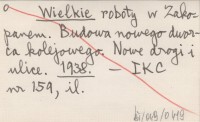 Wielkie roboty w Zako-
panem. Budowa nowego dwor-
ca kolejowego. Nowe drogi i
ulice. 1938. — IKC
nr 159, il.